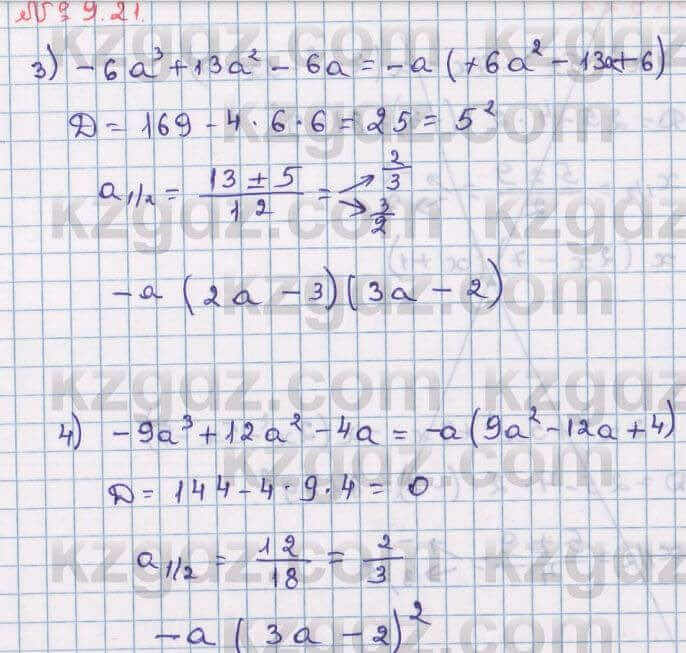 № 9.21.
3) -6a³ + 13a² - 6a = -a (+6a² - 13a + 6)
D = 169 - 4 · 6 · 6 = 25 = 5²
a₁/₂ = (13 ± 5)/12 = → 2/3 → 3/2
-a (2a - 3)(3a - 2)
4) -9a³ + 12a² - 4a = -a (9a² - 12a + 4)
D = 144 - 4 · 9 · 4 = 0
a₁/₂ = 12/18 = 2/3
-a (3a - 2)²
kzgdz.com